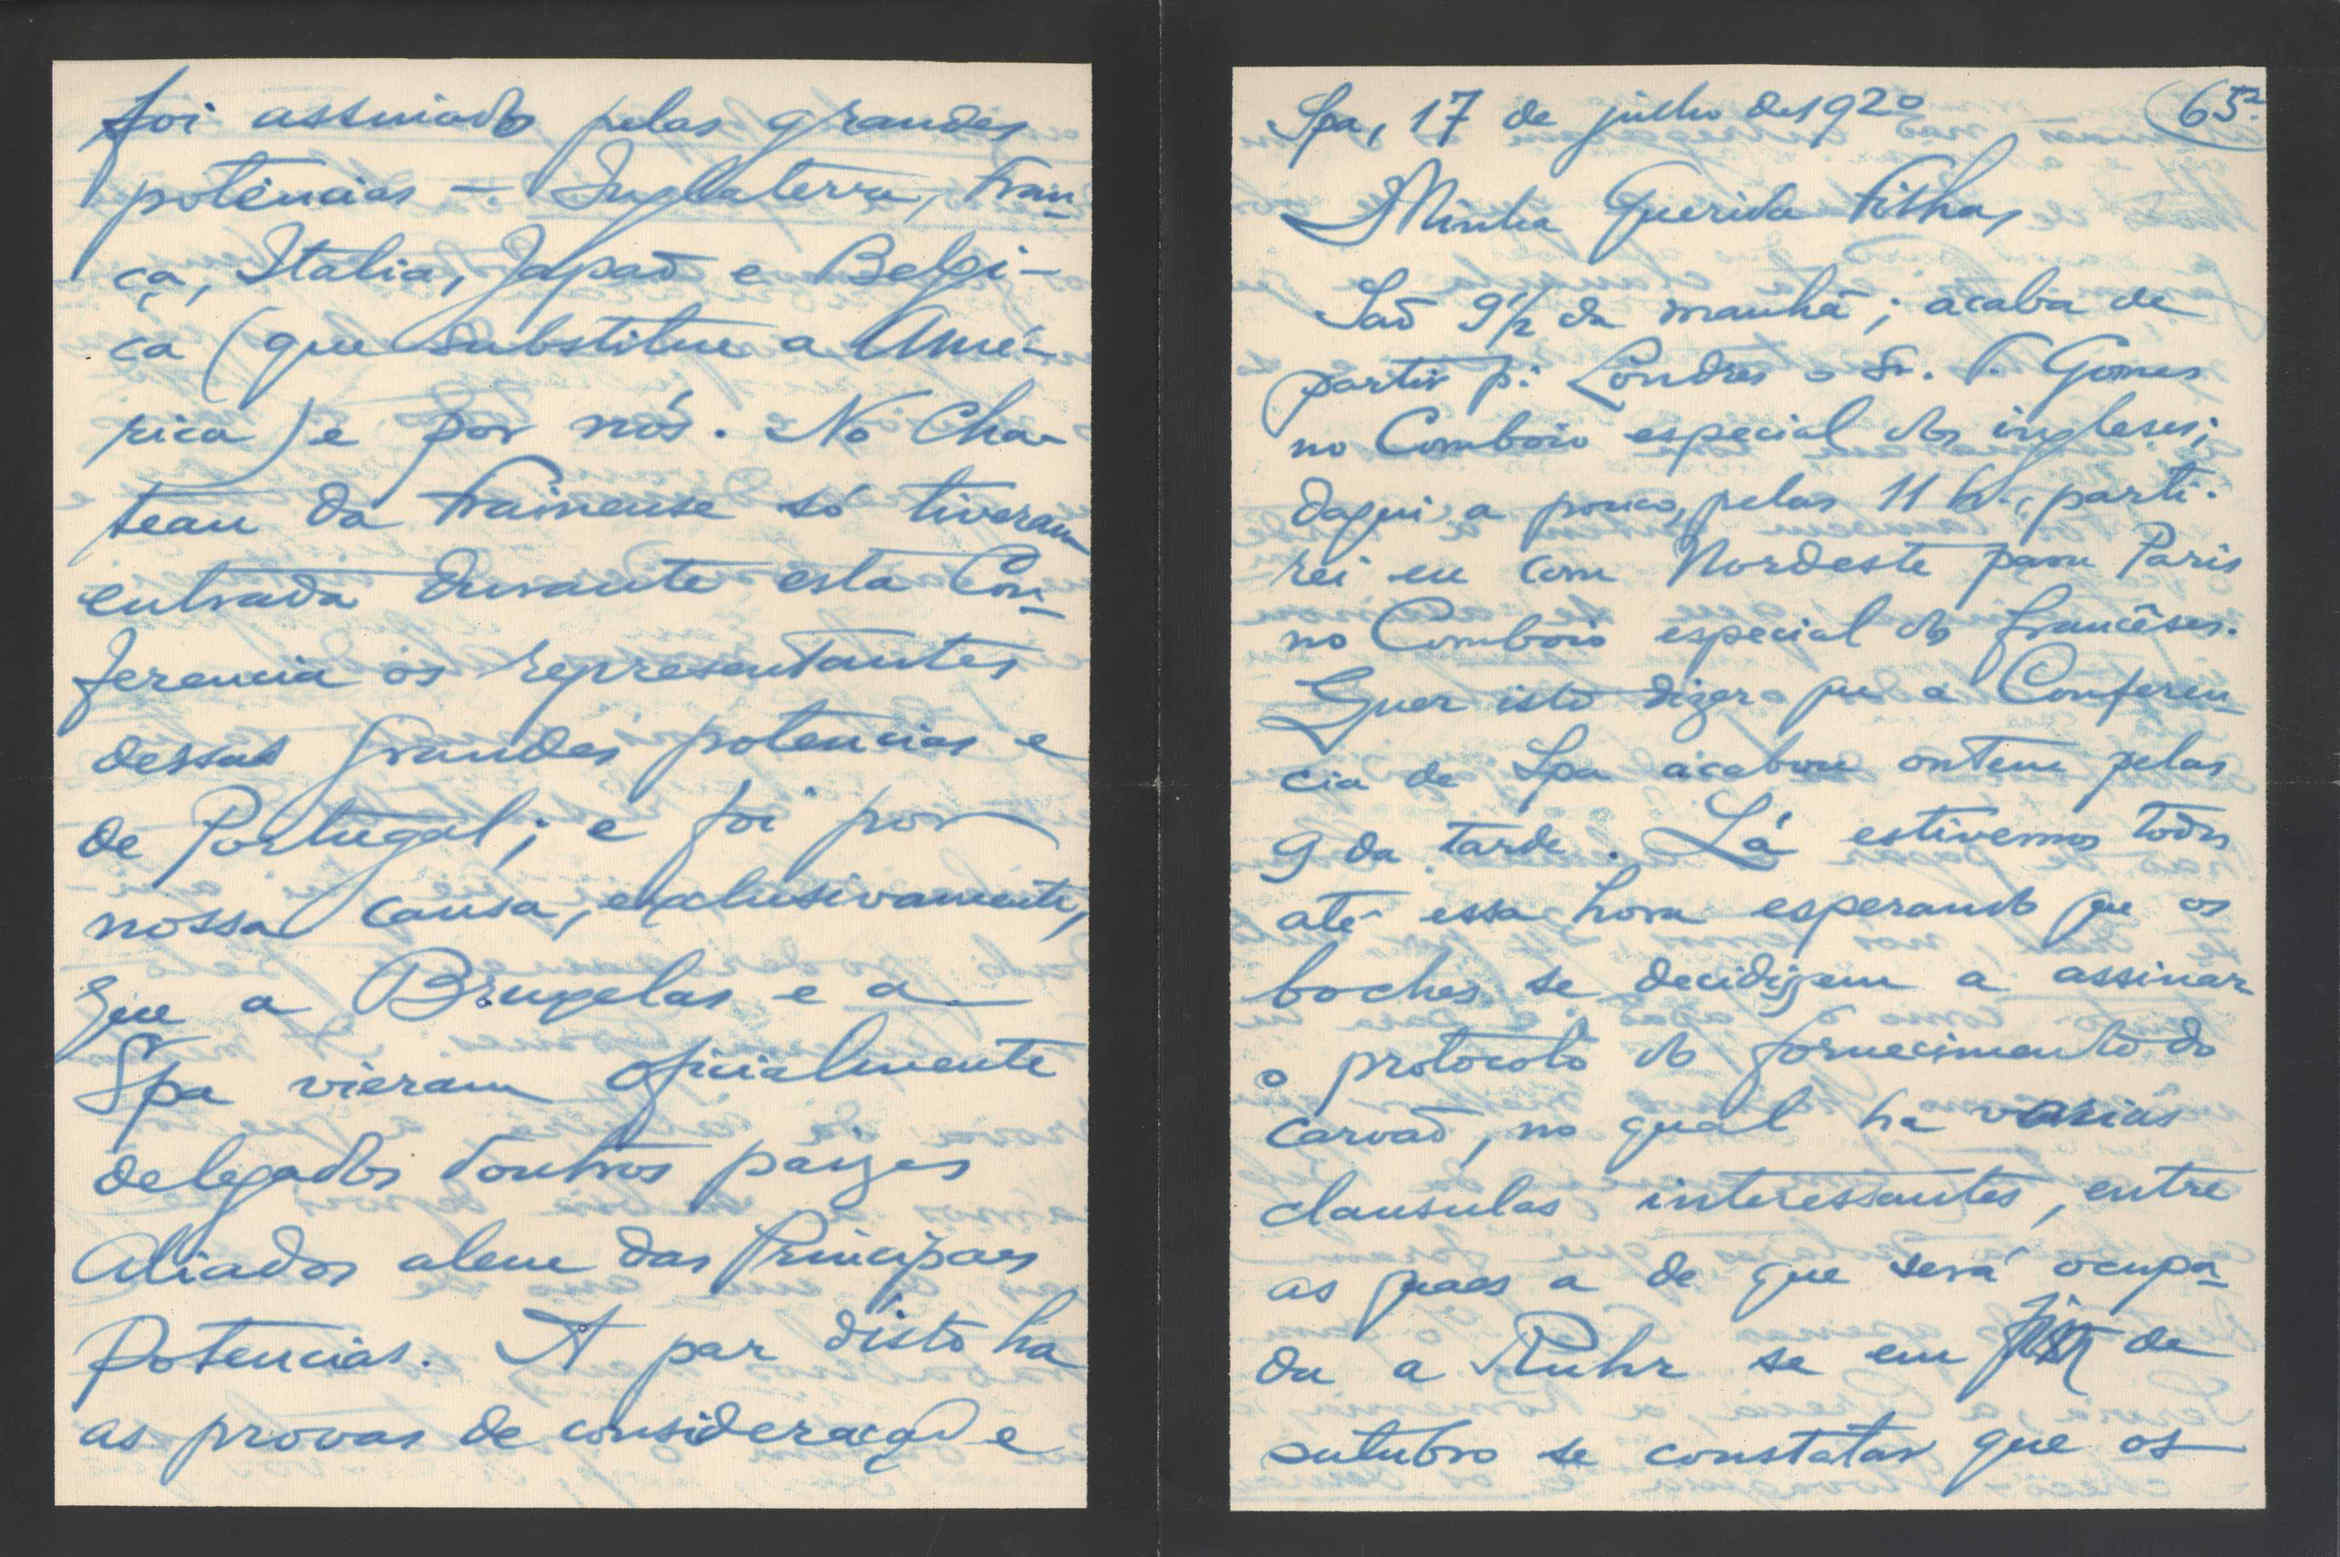 foi assinado pelas grandes
potências — Inglaterra, Fran-
ça, Italia, Japaõ e Belgi-
ca (que substitue a Amé-
rica) e por nós. No Cha-
teau da Fraineuse só tiveram
entrada durante esta Con-
ferencia os representantes
dessas grandes potencias e
de Portugal; e foi por
nossa causa, exclusivamente,
que a Bruxelas e a
Spa vieram oficialmente
delegados doutros paizes
Aliados alem das Principaes
Potencias. A par disto ha
as provas de consideraçaõ e
Spa, 17 de julho de 1920
65ª
Minha Querida Filha,
Saõ 9 1/2 da manhã; acaba de
partir p: Londres o Sr. T. Gomes
no Comboio especial dos ingleses;
daqui a pouco, pelas 11 h., parti-
rei eu com Nordeste para Paris
no Comboio especial dos francêses.
Quer isto dizer que a Conferen-
cia de Spa acabou ontem pelas
9 da tarde. Lá estivemos todos
até essa hora esperando que os
boches se decidissem a assinar
o protocolo do fornecimento do
carvaõ, no qual ha varias
clausulas interessantes, entre
as quaes a de que será ocupa-
da a Ruhr se em fins de
outubro se constatar que os